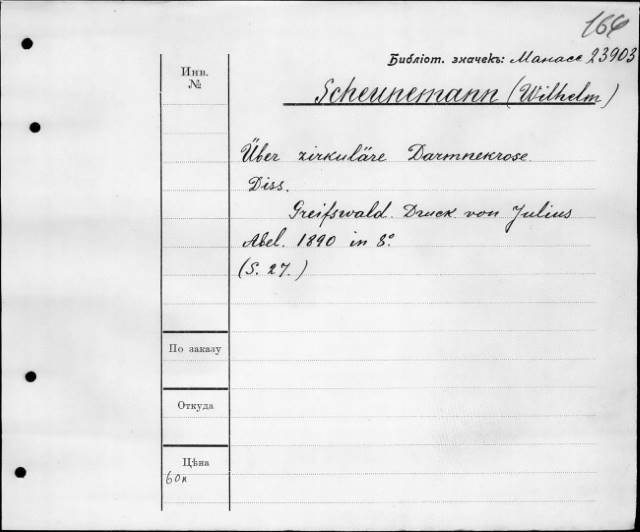 166
Библіот. значекъ: Манасе 23903
Инв.
№
Scheunemann (Wilhelm)
Über zirkuläre Darmnekrose
Diss.
Greifswald. Druck von Julius
Abel. 1890 in 8°.
(S. 27.)
По заказу
Откуда
Цѣна
60к